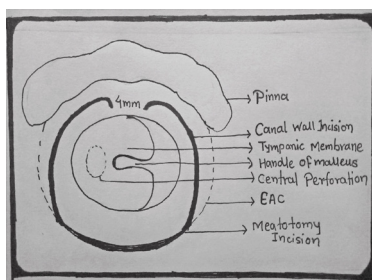 4mm
Pinna
Canal Wall Incision
Tympanic Membrane
Handle of malleus
Central Perforation
EAC
Meatotomy
Incision